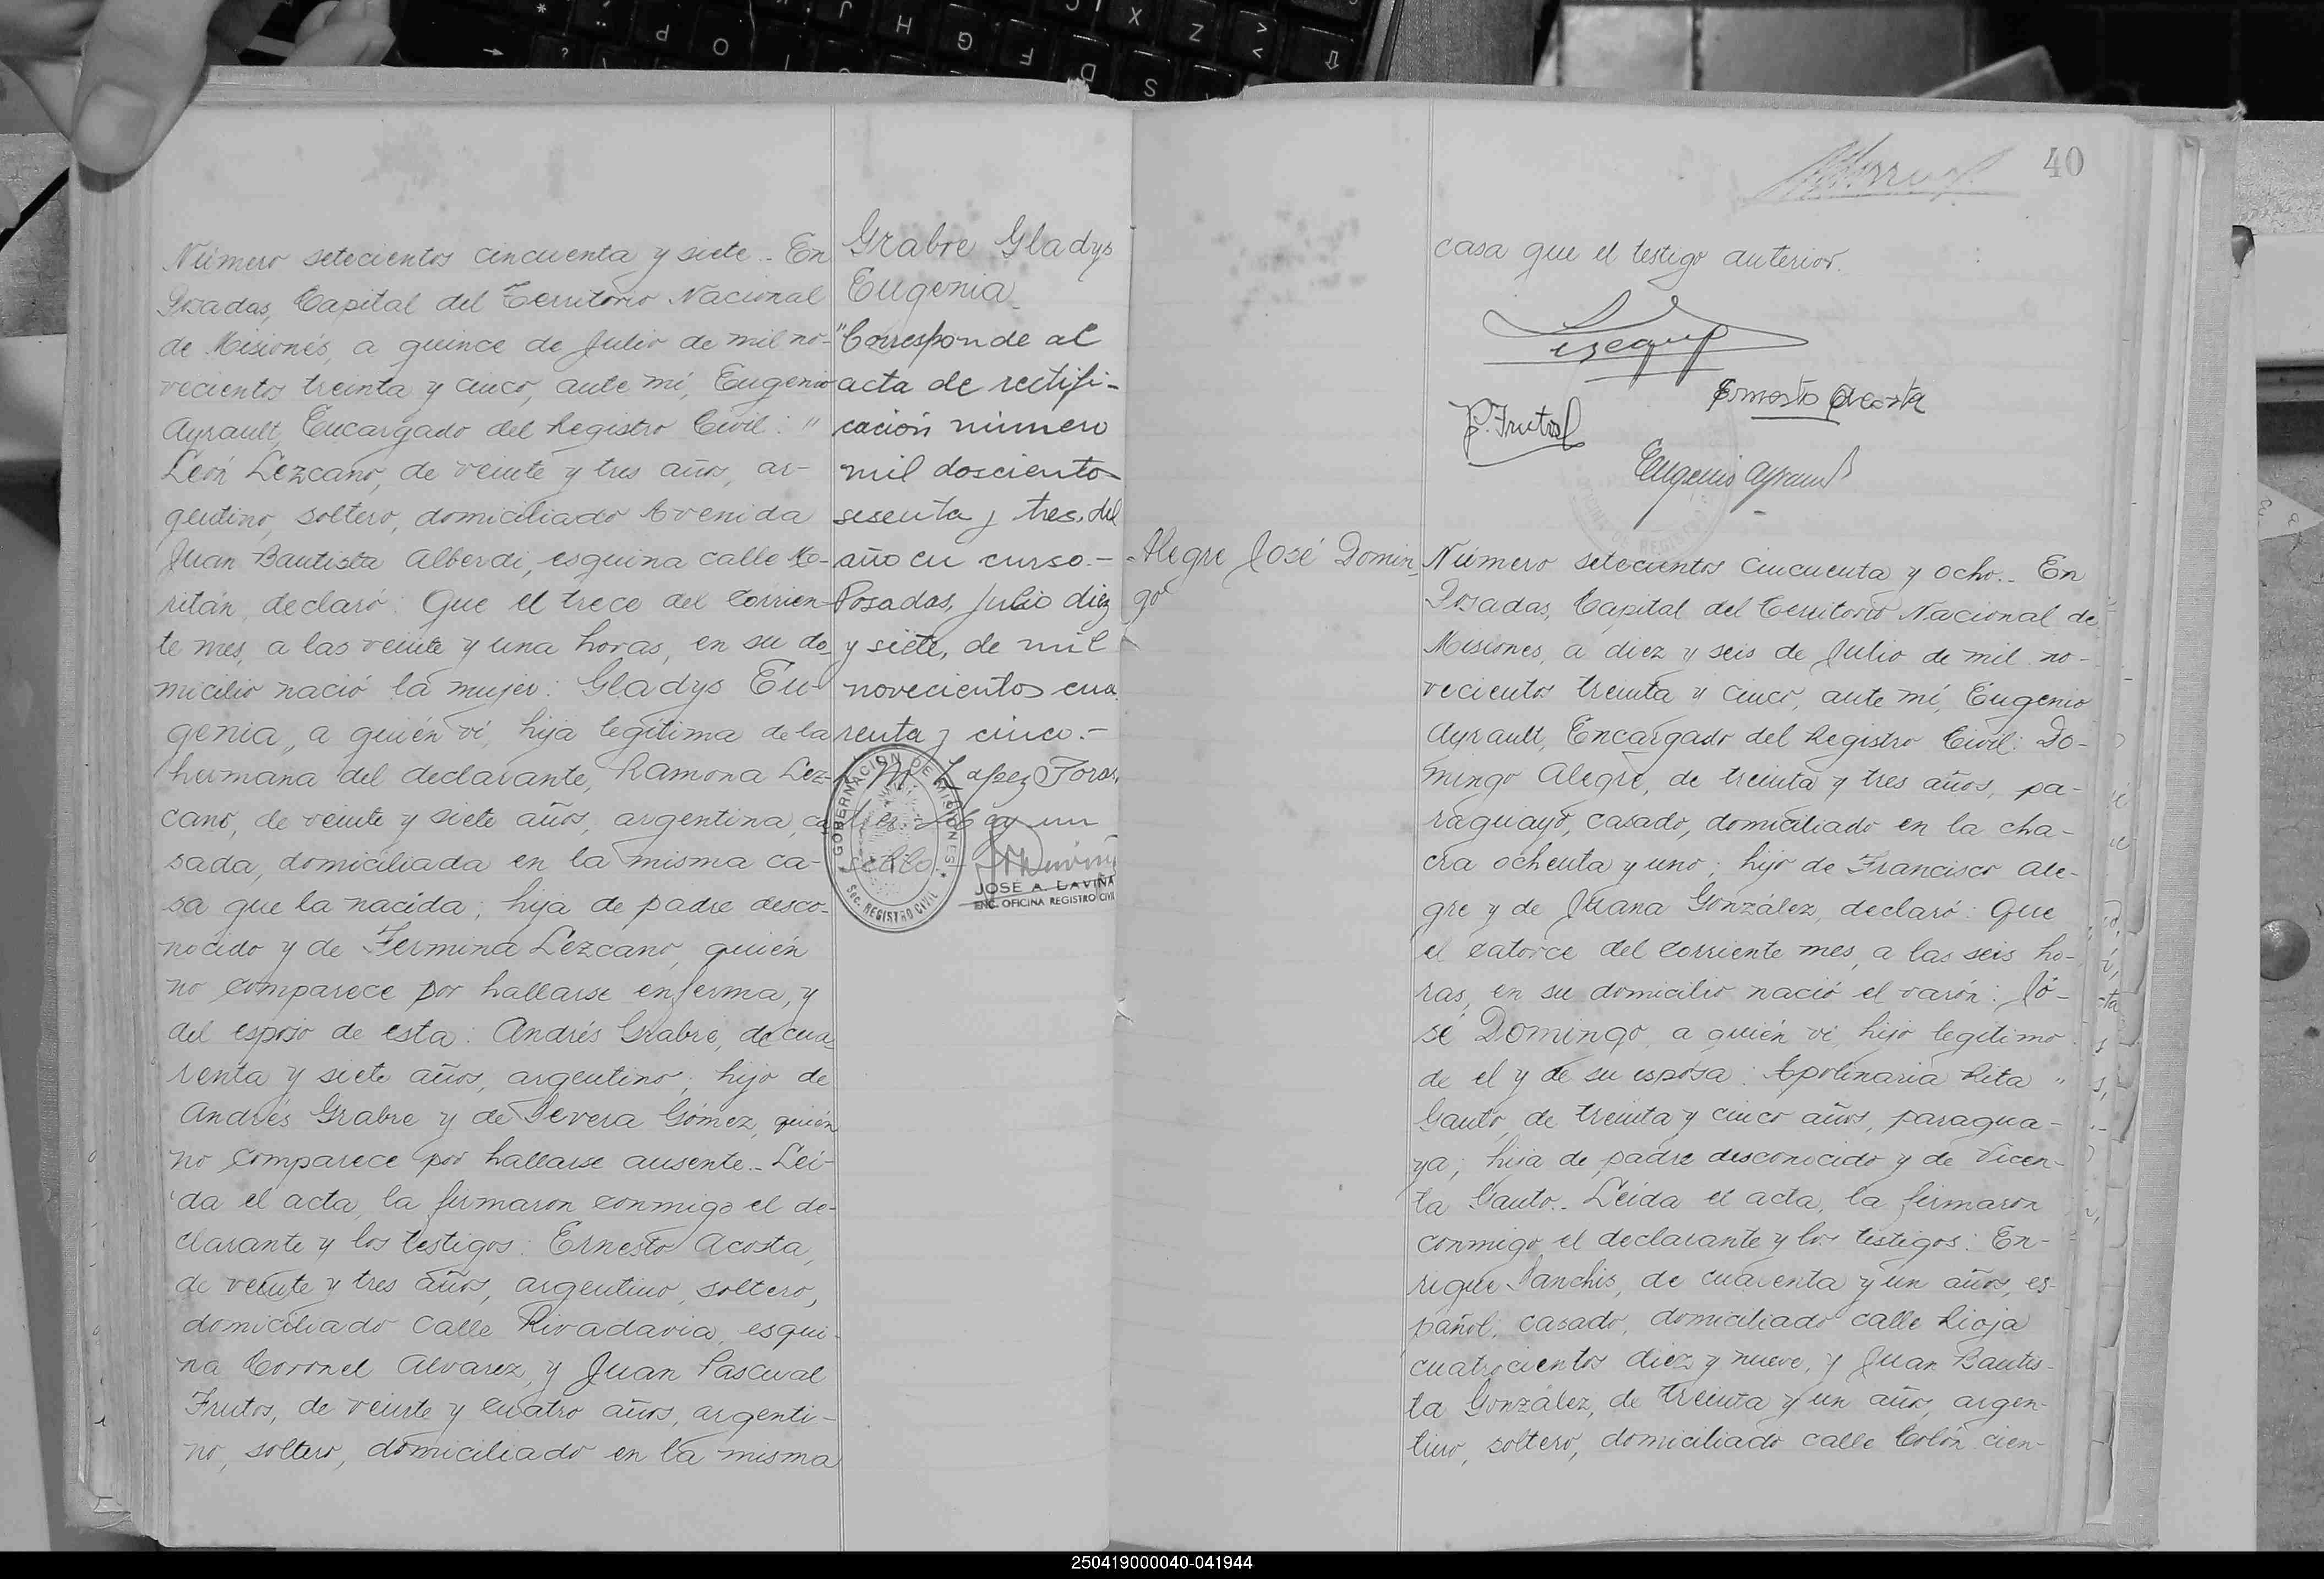 Número setecientos cincuenta y siete.- En
Posadas, Capital del Territorio Nacional
de Misiones, a quince de Julio de mil no-
vecientos treinta y cinco, ante mí, Eugenio
Ayrault, Encargado del Registro Civil: "
León Lezcano, de veinte y tres años, ar-
gentino, soltero, domiciliado Avenida
Juan Bautista Alberdi, esquina calle Mo-
ritán, declaró: Que el trece del corrien-
te mes, a las veinte y una horas, en su do-
micilio nació la mujer: Gladys Eu-
genia, a quién ví, hija legítima de la
hermana del declarante, Ramona Lez-
cano, de veinte y siete años, argentina, ca-
sada, domiciliada en la misma ca-
sa que la nacida; hija de padre desco-
nocido y de Fermina Lezcano, quién
no comparece por hallarse enferma, y
del esposo de esta: Andrés Grabre, de cua-
renta y siete años, argentino; hijo de
Andrés Grabre y de Severa Gómez, quién
no comparece por hallarse ausente.- Leí-
da el acta, la firmaron conmigo el de-
clarante y los testigos: Ernesto Acosta,
de veinte y tres años, argentino, soltero,
domiciliado calle Rivadavia, esqui-
na Coronel Alvarez, y Juan Pascual
Frutos, de veinte y cuatro años, argenti-
no, soltero, domiciliado en la misma
Grabre Gladys
Eugenia
"Corresponde al
acta de rectifi-
cación número
mil dosciento-
sesenta y tres, del
año en curso.-
Posadas, Julio diez
y siete, de mil
novecientos cua
renta y cinco.-
López
un
sello
GOBERNACION DE MISIONES
Sec. REGISTRO CIVIL
JOSÉ A. LAVIÑA
ENC. OFICINA REGISTRO CIVIL
40
casa que el testigo anterior.
Ernesto Acosta
P. Frutos
Eugenio Ayrault
Alegre José Domin-
go
Número setecientos cincuenta y ocho.- En
Posadas, Capital del Territorio Nacional de
Misiones, a diez y seis de Julio de mil no-
vecientos treinta y cinco, ante mí, Eugenio
Ayrault, Encargado del Registro Civil: Do-
mingo Alegre, de treinta y tres años, pa-
raguayo, casado, domiciliado en la cha-
cra ochenta y uno; hijo de Francisco Ale-
gre y de Juana González, declaró: Que
el catorce del corriente mes, a las seis ho-
ras, en su domicilio nació el varón: Jo-
sé Domingo, a quién ví, hijo legítimo
de el y de su esposa: Apolinaria Rita "
Gauto, de treinta y cinco años, paragua-
ya; hija de padre desconicido y de Vicen-
ta Gauto.- Leída el acta, la firmaron
conmigo el declarante y los testigos: En-
rique Sanchis, de cuarenta y un años, es-
pañol, casado, domiciliado calle Rioja
cuatrocientos diez y nueve, y Juan Bautis-
ta González, de treinta y un año, argen-
tino, soltero, domiciliado calle Colón cien-
250419000040-041944